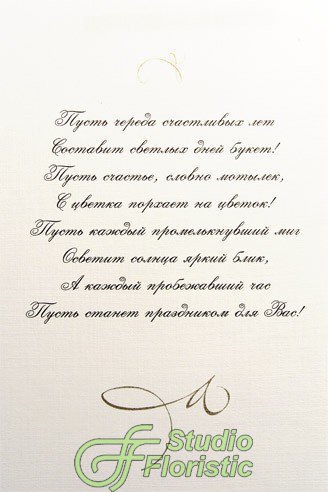 Пусть череда счастливых лет
Составит светлых дней букет!
Пусть счастье, словно мотылек,
С цветка порхает на цветок!
Пусть каждый промелькнувший миг
Осветит солнца яркий блик,
А каждый пробежавший час
Пусть станет праздником для Вас!
Studio
Floristic